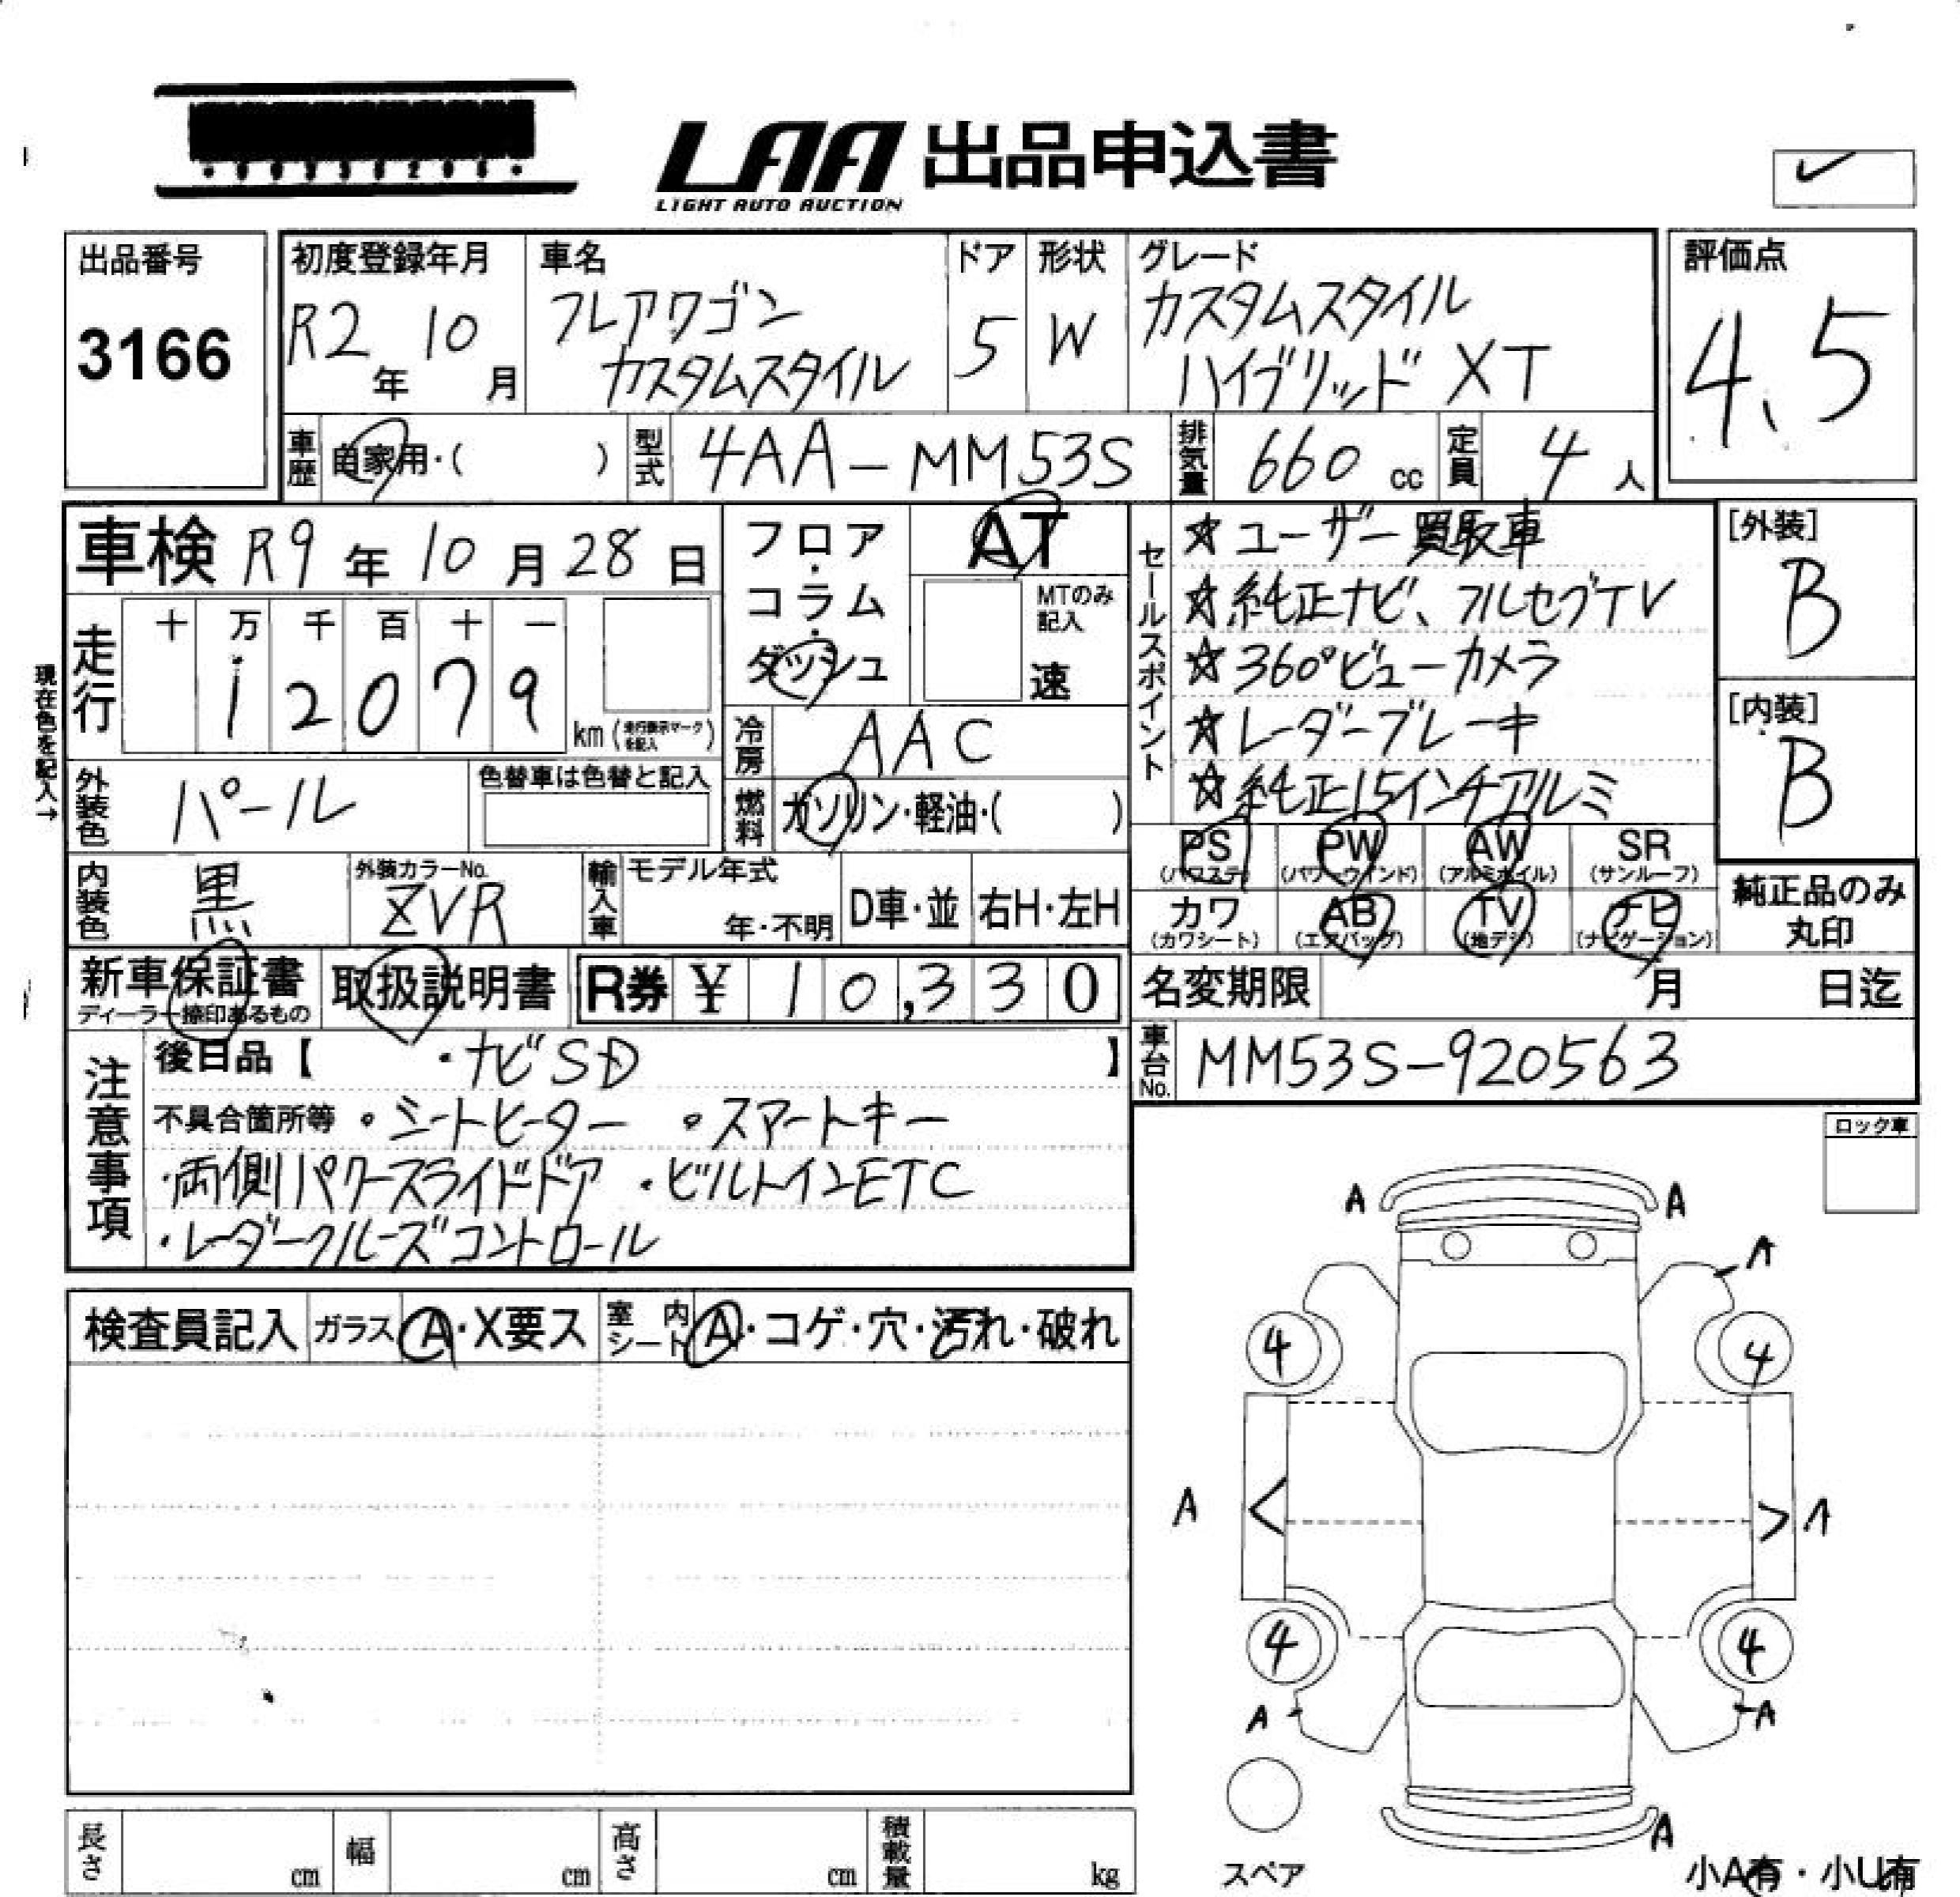 LAA 出品申込書
LIGHT AUTO AUCTION
出品番号
3166
初度登録年月
R2年 10月
車名
フレアワゴン
カスタムスタイル
ドア
5
形状
W
グレード
カスタムスタイル
ハイブリッド XT
評価点
4.5
車歴 自家用・( )
型式 4AA-MM53S
排気量 660 cc
定員 4人
車検 R9年 10月 28日
走行 十 万 千 百 十 一
1 2 0 7 9
km (走行表示マークを記入)
現在色を記入→
外装色 パール
色替車は色替と記入
内装色 黒
外装カラーNo. ZVR
フロア・コラム・ダッシュ
AT
MTのみ記入
速
冷房 AAC
燃料 ガソリン・軽油・( )
輸入車 モデル年式
年・不明
D車・並
右H・左H
セールスポイント
☆ユーザー買取車
☆純正ナビ、フルセグTV
☆360°ビューカメラ
☆レーダーブレーキ
☆純正15インチアルミ
[外装]
B
[内装]
B
PS (パワステ) PW (パワーウインド) AW (アルミホイル) SR (サンルーフ)
カワ (カワシート) AB (エアバッグ) TV (地デジ) ナビ (ナビゲーション)
純正品のみ
丸印
新車保証書
ディーラー捺印あるもの
取扱説明書
R券 ¥ 10,330
名変期限 月 日迄
車台No. MM53S-920563
注意事項
後日品【 ・ナビSD 】
不具合箇所等 ・シートヒーター ・スマートキー
・両側パワースライドドア ・ビルトインETC
・レーダークルーズコントロール
ロック車
検査員記入 ガラス A・X要ス 室内シート A・コゲ・穴・汚れ・破れ
A A
A
4 4
A
4 4
A A
A
スペア
小A有・小U有
長さ cm 幅 cm 高さ cm 積載量 kg